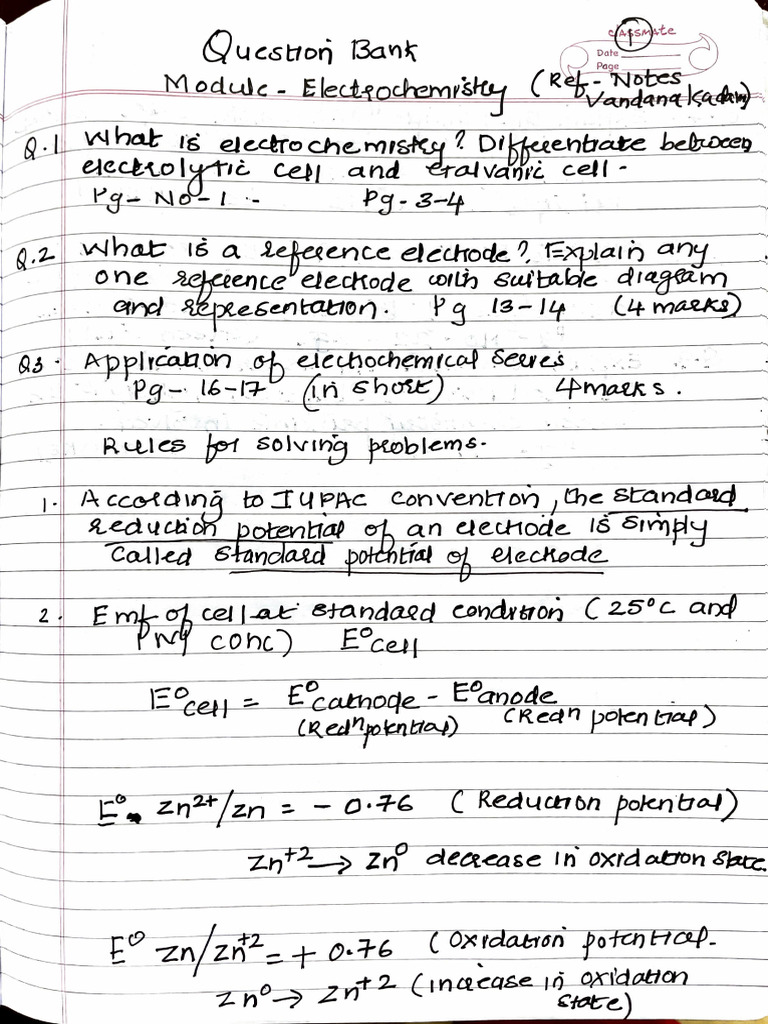 classmate
Date
Page
1
Question Bank
Module - Electrochemistry (Ref - Notes
Vandana Kadam)
Q.1 What is electrochemistry? Differentiate between
electrolytic cell and Galvanic cell -
Pg - No - 1 - Pg - 3-4
Q.2 What is a reference electrode? Explain any
one reference electrode with suitable diagram
and representation. Pg 13-14 (4 marks)
Q3. Application of electrochemical series
Pg - 16-17 (in short) 4 marks.
Rules for solving problems.
1. According to IUPAC convention, the standard
reduction potential of an electrode is simply
called standard potential of electrode
2. Emf of cell at standard condition (25°C and
conc) E°cell
E°cell = E°cathode - E°anode
(Redn potential) (Redn potential)
E° Zn2+/Zn = - 0.76 (Reduction potential)
Zn+2 → Zn0 decrease in oxidation state.
E° Zn/Zn+2 = + 0.76 (Oxidation potential.
Zn0 → Zn+2 (increase in oxidation
state)